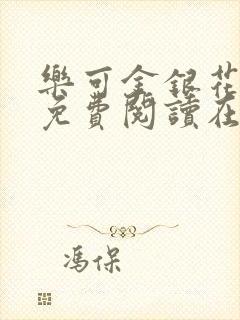 樂可金銀花
免費閱讀在
馮保